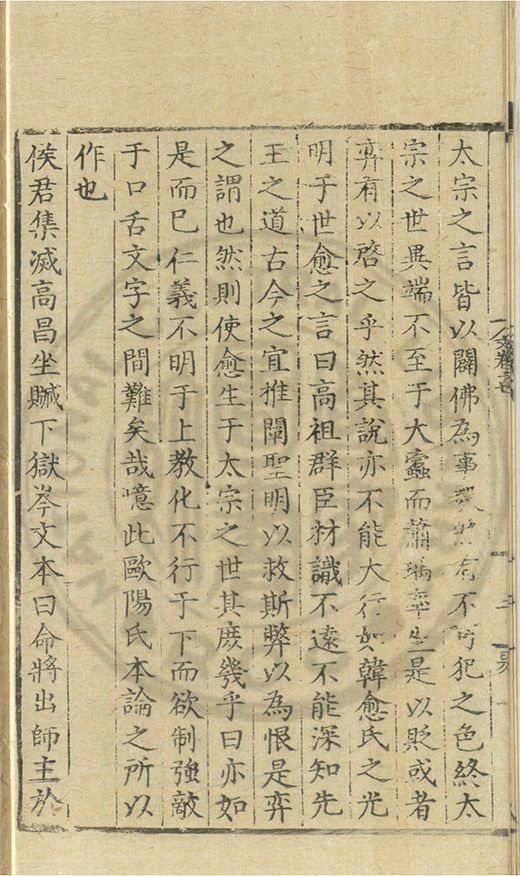 太宗之言皆以闢佛為事凜然有不可犯之色終太
宗之世異端不至于大蠹而蕭瑀卒坐是以貶或者
弈有以啓之乎然其說亦不能大行如韓愈氏之光
明于世愈之言曰高祖群臣材識不遠不能深知先
王之道古今之宜推闡聖明以救斯弊以為恨是弈
之謂也然則使愈生于太宗之世其庶幾乎曰亦如
是而已仁義不明于上教化不行于下而欲制強敵
于口舌文字之間難矣哉噫此歐陽氏本論之所以
作也
侯君集滅高昌坐贓下獄岑文本曰命將出師主於